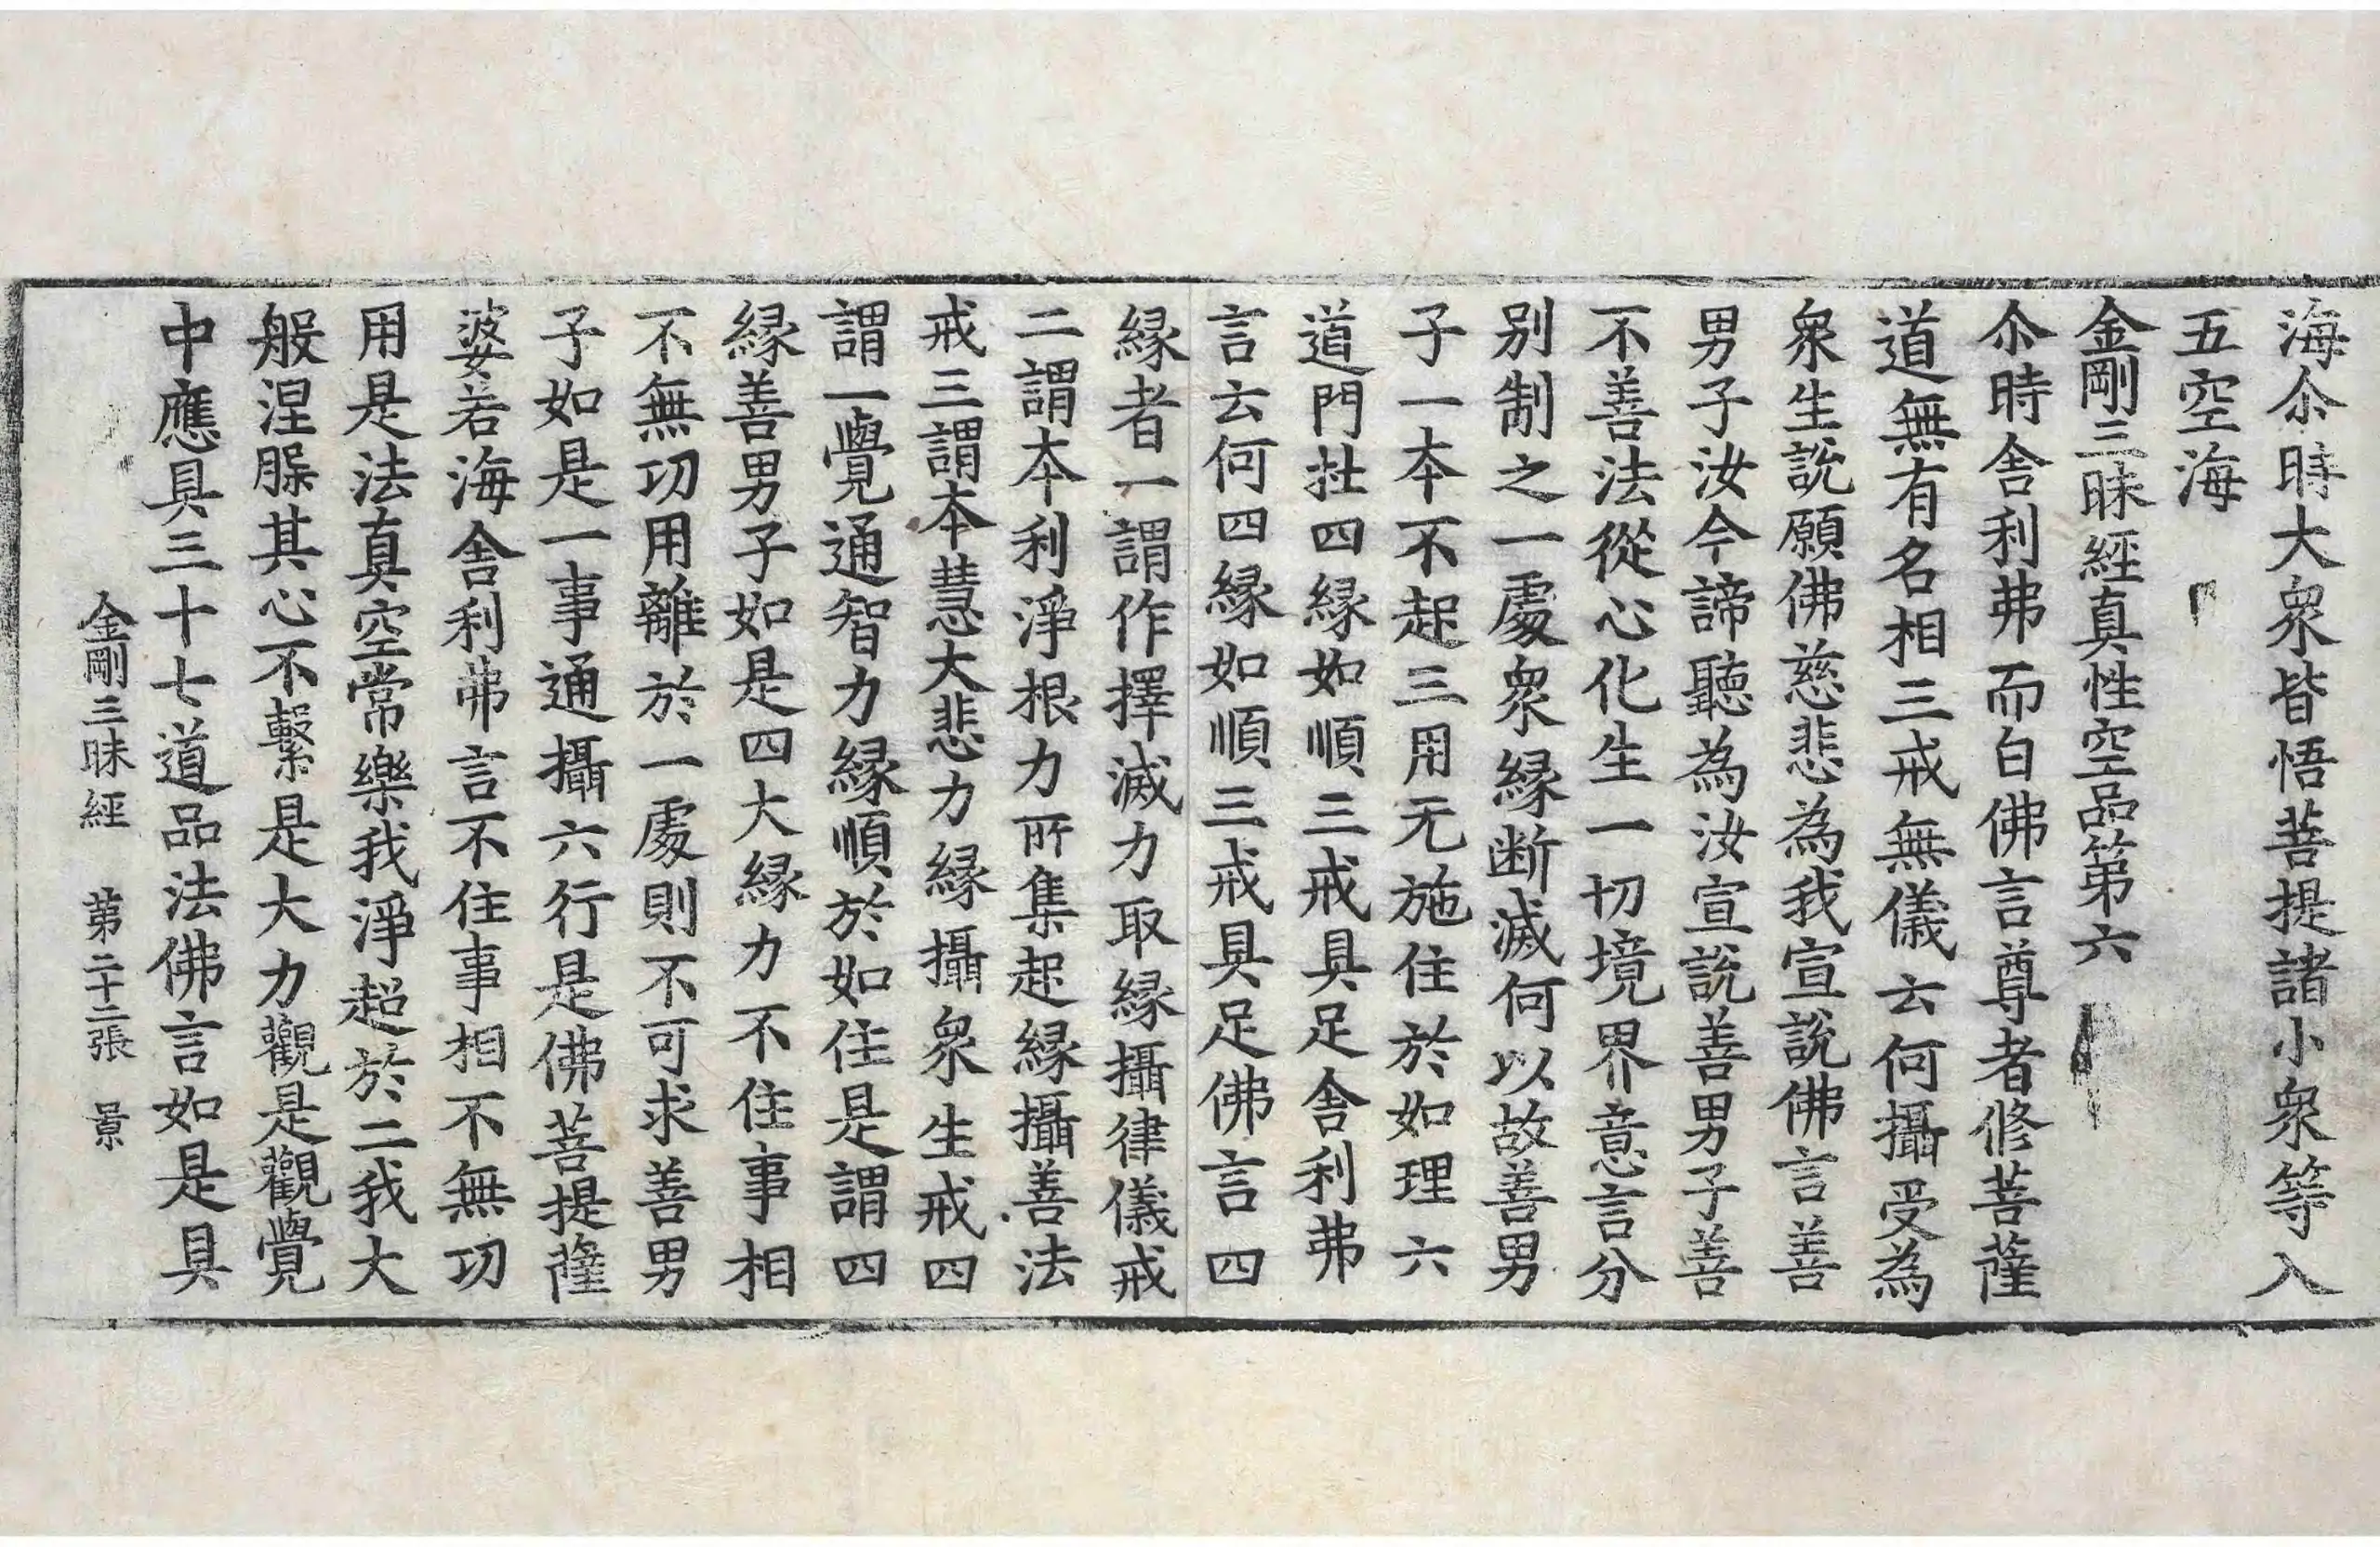 海尒時大衆皆悟菩提諸小衆等入
五空海
金剛三昧經真性空品第六
尒時舎利弗而白佛言尊者修菩薩
道無有名相三戒無儀云何攝受為
衆生說願佛慈悲為我宣說佛言善
男子汝今諦聽為汝宣說善男子善
不善法從心化生一切境界意言分
別制之一處衆緣断滅何以故善男
子一本不起三用无施住於如理六
道門杜四緣如順三戒具足舎利弗
言云何四緣如順三戒具足佛言四
緣者一謂作擇滅力取緣攝律儀戒
二謂本利淨根力所集起緣攝善法
戒三謂本慧大悲力緣攝衆生戒四
謂一覺通智力緣順於如住是謂四
緣善男子如是四大緣力不住事相
不無功用離於一處則不可求善男
子如是一事通攝六行是佛菩提薩
婆若海舎利弗言不住事相不無功
用是法真空常樂我淨超於二我大
般涅槃其心不繫是大力觀是觀覺
中應具三十七道品法佛言如是具
金剛三昧經 第二十二張 景